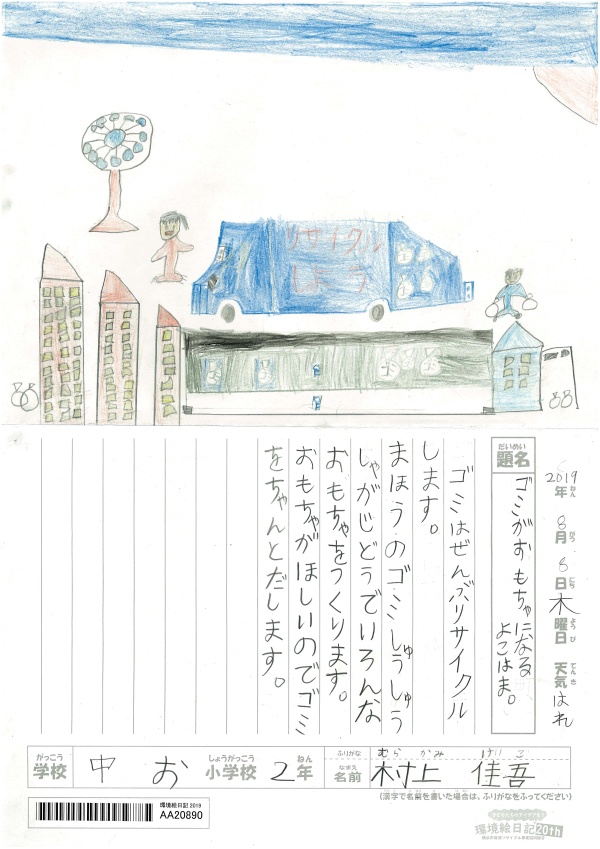 リサイクル
しょう
2019年 8月 8日 木曜日 天気 はれ
ねん がつ にち ようび てんき
だいめい
題名
ゴミがおもちゃになる
よこはま。
ゴミはぜんぶリサイクル
します。
まほうのゴミしゅうしゅう
しゃがじどうでいろんな
おもちゃをつくります。
おもちゃがほしいのでゴミ
をちゃんとだします。
がっこう しょうがっこう ねん
学校 中お 小学校 2年
ふりがな むら かみ けい ご
なまえ
名前 村上 佳吾
(漢字で名前を書いた場合は、ふりがなをふってください)
環境絵日記 2019
AA20890
環境絵日記 20th